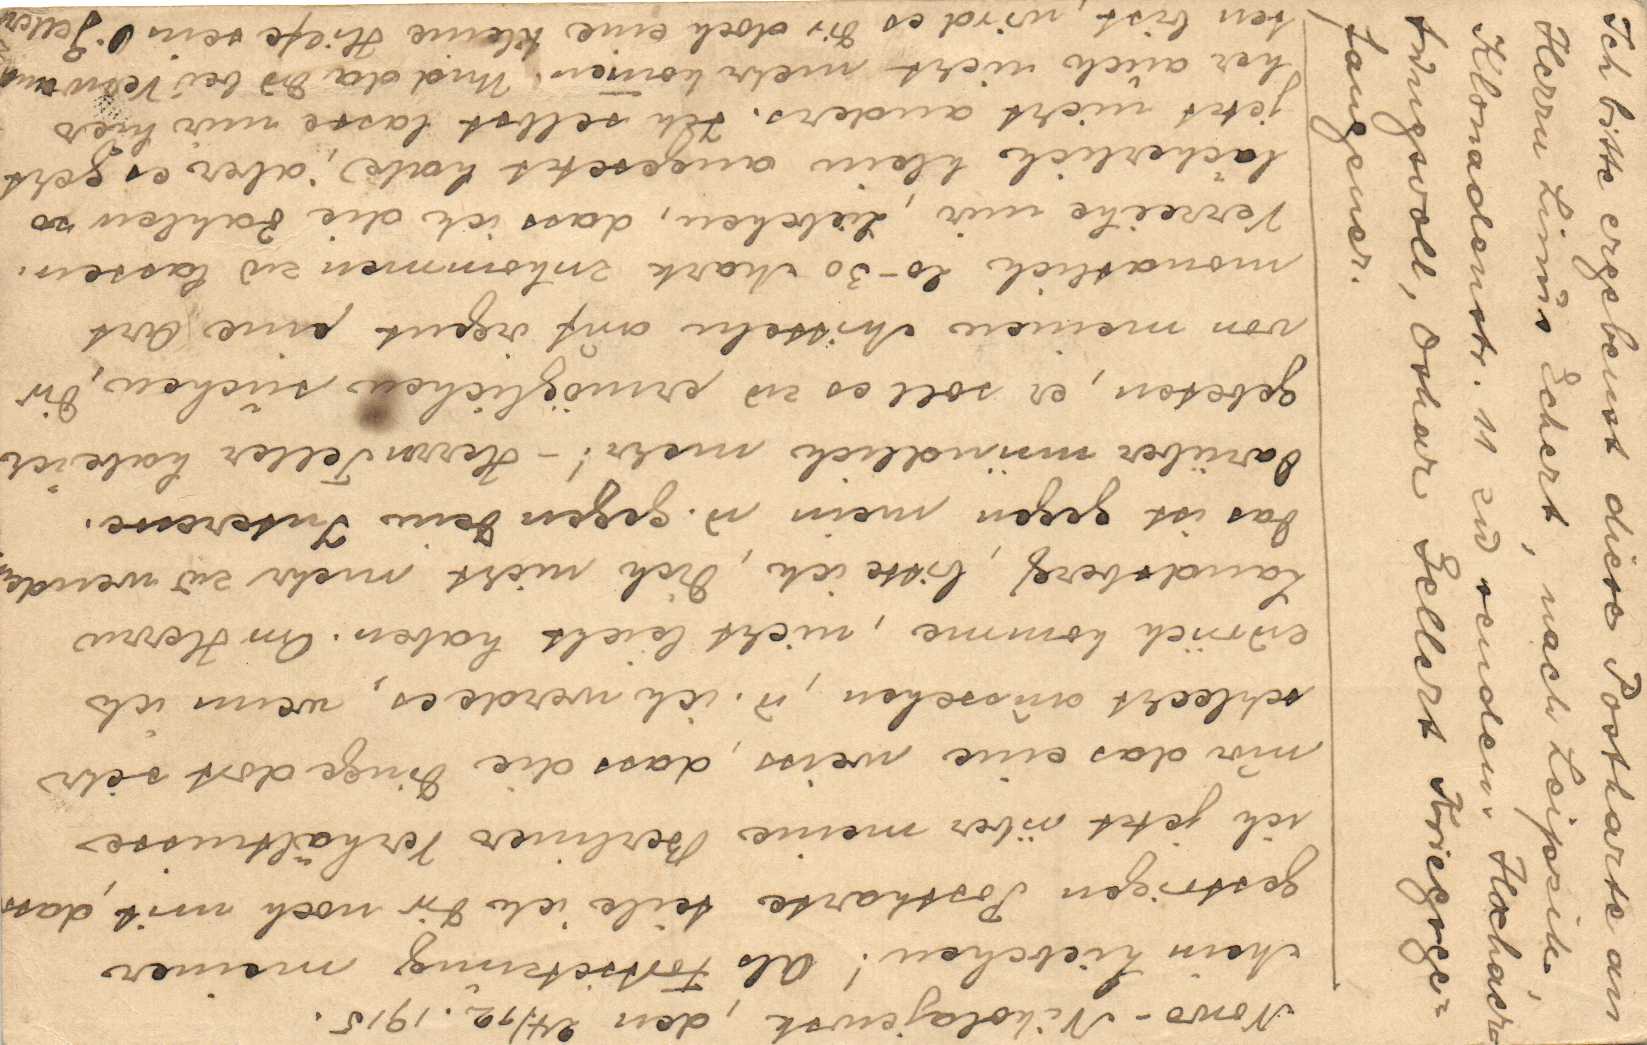 Nowo-Nikolajewsk, den 24/12. 1915.
Mein Liebchen! Als Fortsetzung meiner
gestrigen Postkarte teile ich Dir noch mit, dass
ich jetzt über meine Berliner Verhältnisse
nur das eine weiss, dass die Dinge dort sehr
schlecht aussehen, u. ich werde es, wenn ich
zurück komme, nicht leicht haben. An Herrn
Landsberg, bitte ich, Dich nicht mehr zu wenden,
das ist gegen mein u. gegen Dein Interesse.
Darüber mündlich mehr! - Herrn Teller habe ich
gebeten, er soll es zu ermöglichen suchen, Dir
von meinen Mitteln auf irgent eine Art
monatlich 20-30 Mark zukommen zu lassen.
Verzeihe mir, Liebchen, dass ich die Zahlen so
lächerlich klein angesetzt habe, aber es geht
jetzt nicht anders. Ich selbst lasse mir hier
her auch nicht mehr kommen. Und da Du bei Verwand
ten bist, wird es Dir doch eine kleine Hilfe sein
Ich bitte ergebenst diese Postkarte an
Herrn Linus Schert, nach Leipsick,
Klonadenstr. 11 zu senden. Hochach-
tungsvoll, Oskar Gellert Kriegsge-
fangener.